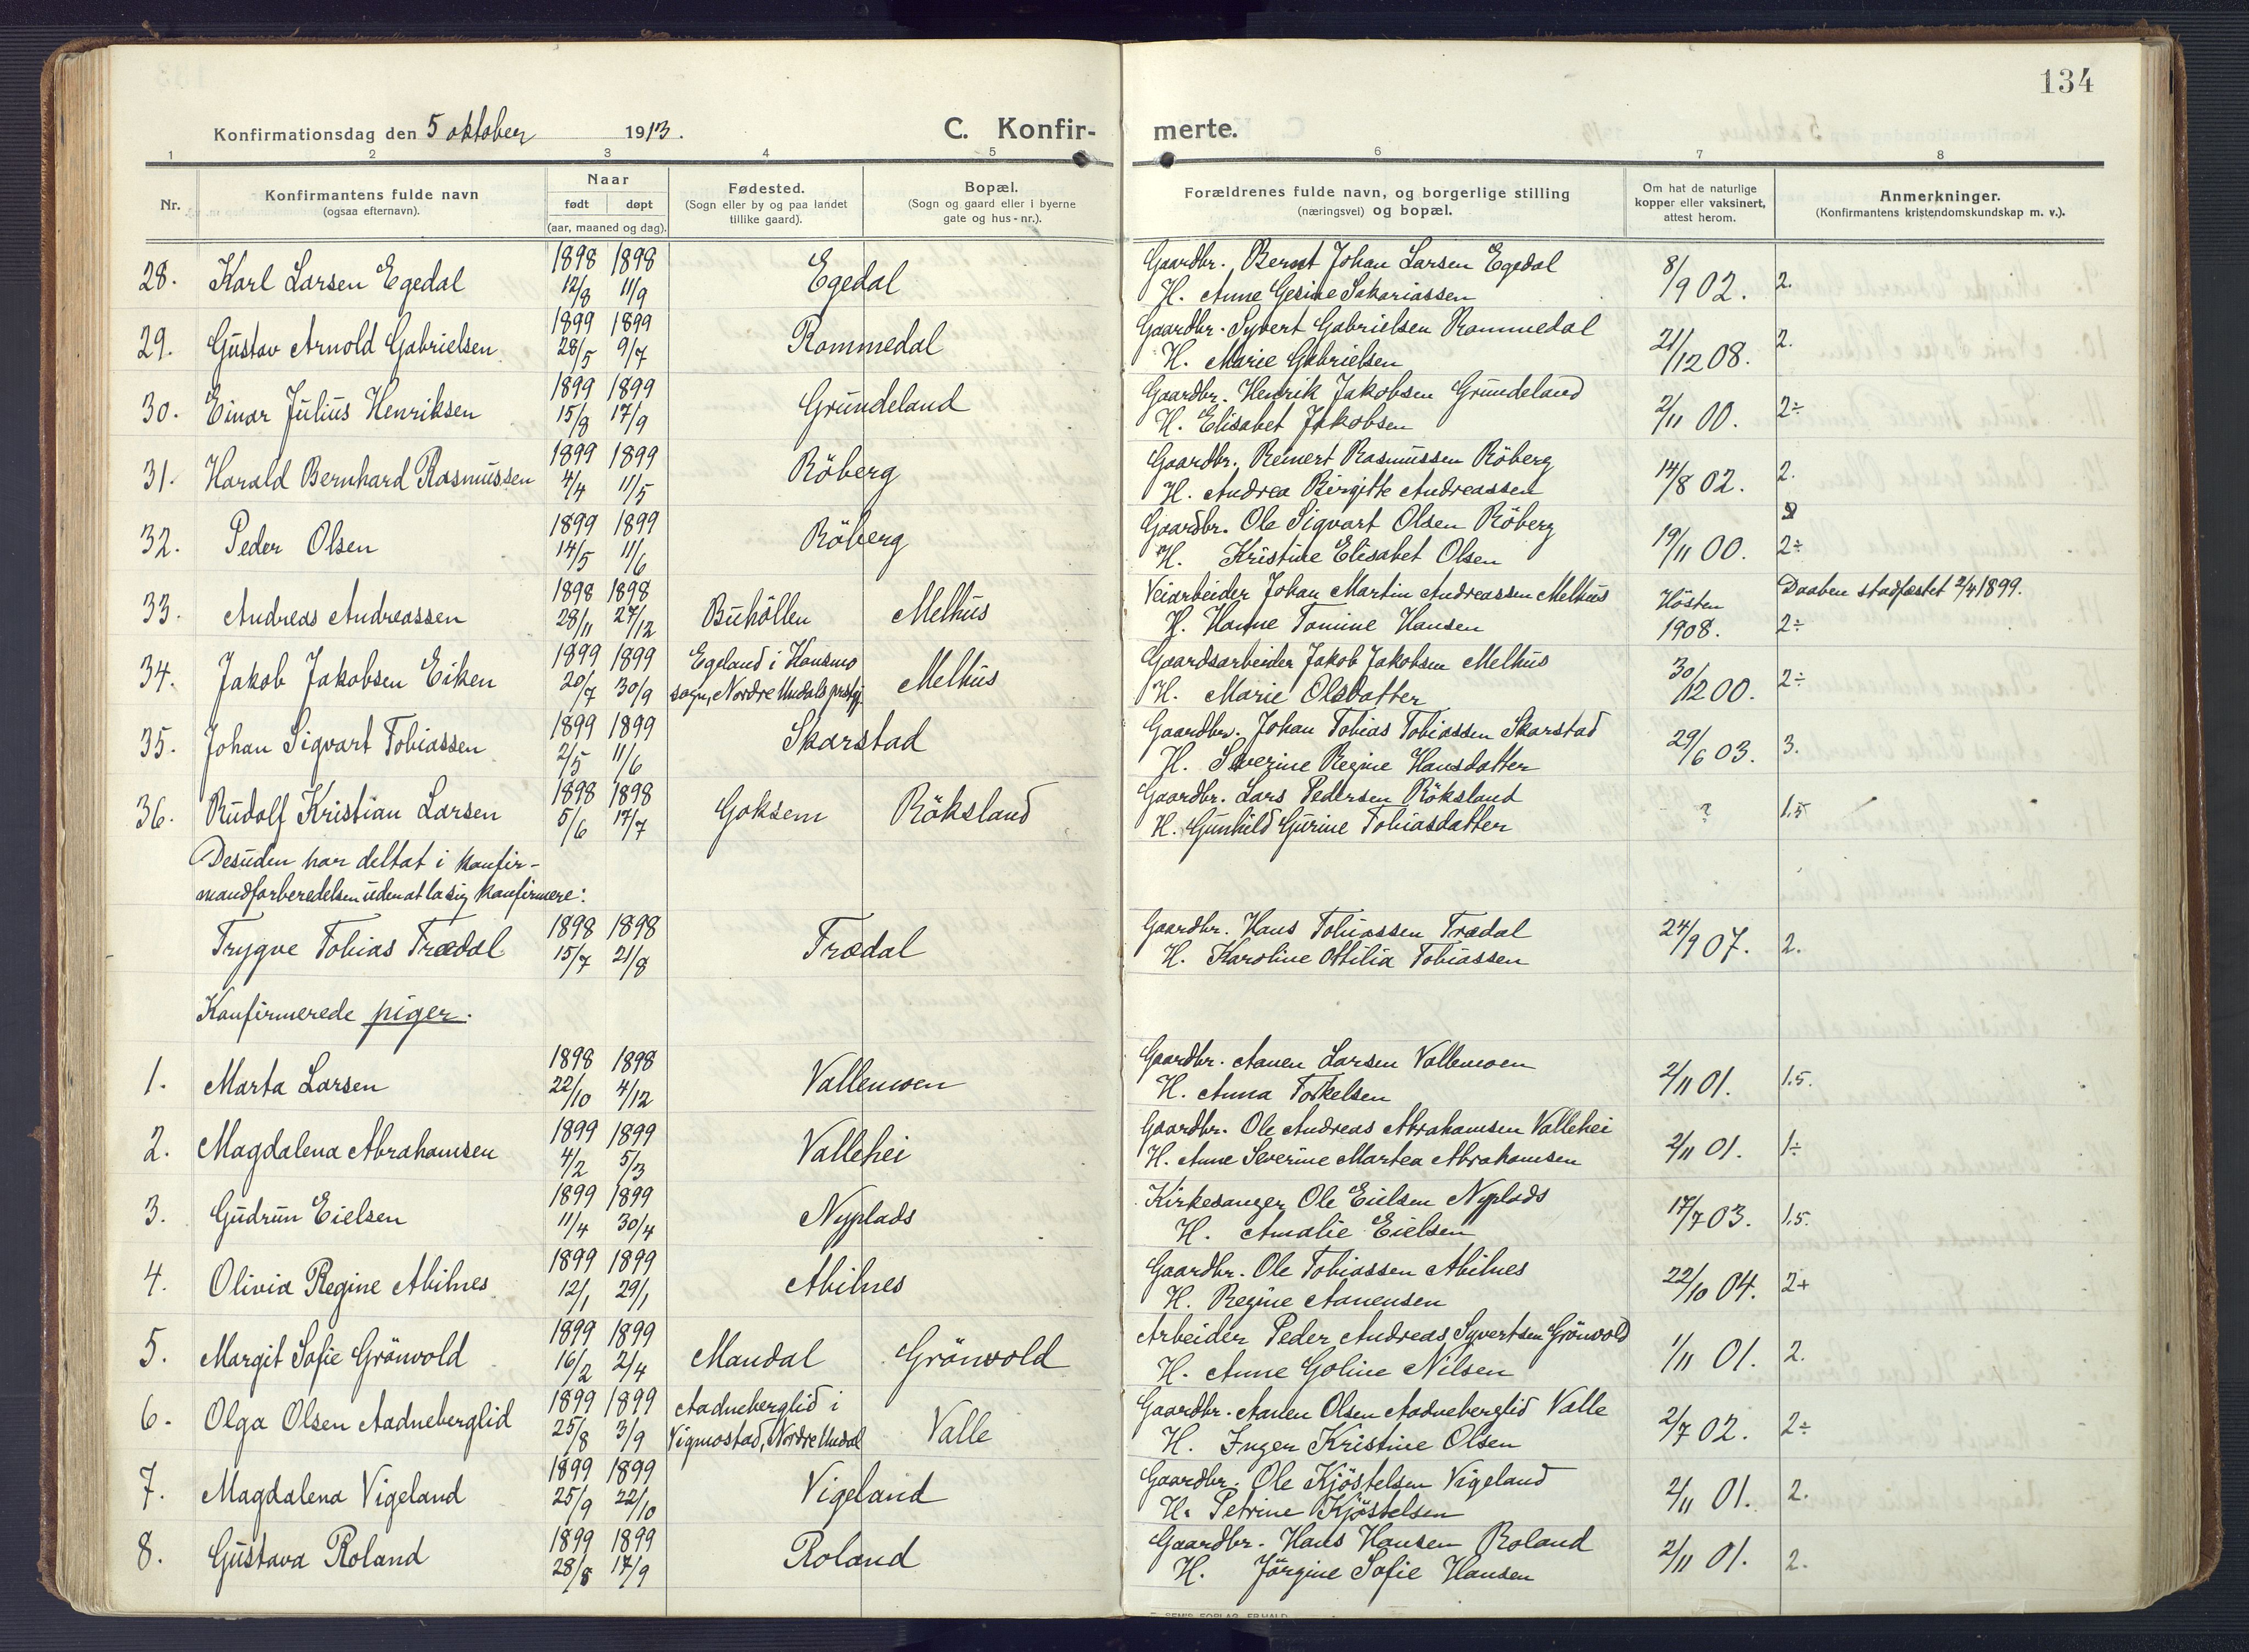 134
Konfirmationsdag den 5 oktober 1913.
C. Konfir-merte.
1 2 3 4 5 6 7 8
Nr.
Konfirmantens fulde navn
(ogsaa efternavn).
Naar
født døpt
(aar, maaned og dag).
Fødested.
(Sogn eller by og paa landet
tillike gaard).
Bopæl.
(Sogn og gaard eller i byerne
gate og hus-nr.).
Forældrenes fulde navn, og borgerlige stilling
(næringsvei) og bopæl.
Om hat de naturlige
kopper eller vaksinert,
attest herom.
Anmerkninger.
(Konfirmantens kristendomskundskap m. v.).
28. Karl Larsen Egedal 1898 12/8 1898 11/9 Egedal
Gaardbr. Bernt Johan Larsen Egedal
H. Anne Gesine Sakariassen
8/9 02. 2.
29. Gustav Arnold Gabrielsen 1899 28/5 1899 9/7 Rommedal
Gaardbr. Syvert Gabrielsen Rommedal
H. Marie Gabrielsen
21/12 08. 2.
30. Einar Julius Henriksen 1899 15/8 1899 17/9 Grundeland
Gaardbr. Henrik Jakobsen Grundeland
H. Elisabet Jakobsen
2/11 00. 2÷
31. Harald Bernhard Rasmussen 1899 4/4 1899 11/5 Röberg
Gaardbr. Reinert Rasmussen Röberg
H. Andrea Birgitte Andreassen
14/8 02. 2.
32. Peder Olsen 1899 14/5 1899 11/6 Röberg
Gaardbr. Ole Sigvart Olsen Röberg
H. Kristine Elisabet Olsen
19/11 00. 2÷
33. Andreas Andreassen 1898 28/11 1898 27/12 Buhöllen Melhus
Veiarbeider Johan Martin Andreassen Melhus
H. Hanne Tomine Hansen
Hösten
1908.
Daaben stadfæstet 2/4 1899.
2÷
34. Jakob Jakobsen Eiken 1899 20/7 1899 30/9
Egeland i Konsmo
sogn, Nordre Undals prstgj.
Melhus
Gaardsarbeider Jakob Jakobsen Melhus
H. Marie Olsdatter
30/12 00. 2÷
35. Johan Sigvart Tobiassen 1899 2/5 1899 11/6 Skarstad
Gaardbr. Johan Tobias Tobiassen Skarstad
H. Severine Regine Hansdatter
29/6 03. 3.
36. Rudolf Kristian Larsen 1898 5/6 1898 17/7 Goksem Röksland
Gaardbr. Lars Pedersen Röksland
H. Gunhild Gurine Tobiasdatter
? 1.5
Desuden har deltat i konfir-
mandforberedelsen uden at la sig konfirmere:
Trygve Tobias Trædal 1898 15/7 1898 21/8 Trædal
Gaardbr. Hans Tobiassen Trædal
H. Karoline Ottilia Tobiassen
24/9 07. 2.
Konfirmerede piger.
1. Marta Larsen 1898 22/10 1898 4/12 Vallemoen
Gaardbr. Aanen Larsen Vallemoen
H. Anna Torkelsen
2/11 01. 1.5.
2. Magdalena Abrahamsen 1899 4/2 1899 5/3 Vallehei
Gaardbr. Ole Andreas Abrahamsen Vallehei
H. Anne Severine Martea Abrahamsen
2/11 01. 1÷
3. Gudrun Eielsen 1899 11/4 1899 30/4 Nyplads
Kirkesanger Ole Eielsen Nyplads
H. Amalie Eielsen
17/7 03. 1.5.
4. Olivia Regine Abilnes 1899 12/1 1899 29/1 Abilnes
Gaardbr. Ole Tobiassen Abilnes
H. Regine Aanensen
22/10 04. 2+
5. Margit Sofie Grönvold 1899 16/2 1899 2/4 Mandal Grönvold
Arbeider Peder Andreas Syvertsen Grönvold
H. Anne Goline Nilsen
1/11 01. 2.
6. Olga Olsen Aadneberglid 1899 25/8 1899 3/9
Aadneberglid i
Vigmostad, Nordre Undal
Valle
Gaardbr. Aanen Olsen Aadneberglid Valle
H. Inger Kristine Olsen
2/7 02. 2÷
7. Magdalena Vigeland 1899 25/9 1899 22/10 Vigeland
Gaardbr. Ole Kjöstelsen Vigeland
H. Petrine Kjöstelsen
2/11 01. 2.
8. Gustava Roland 1899 28/8 1899 17/9 Roland
Gaardbr. Hans Hansen Roland
H. Jörgine Sofie Hansen
2/11 01. 2.